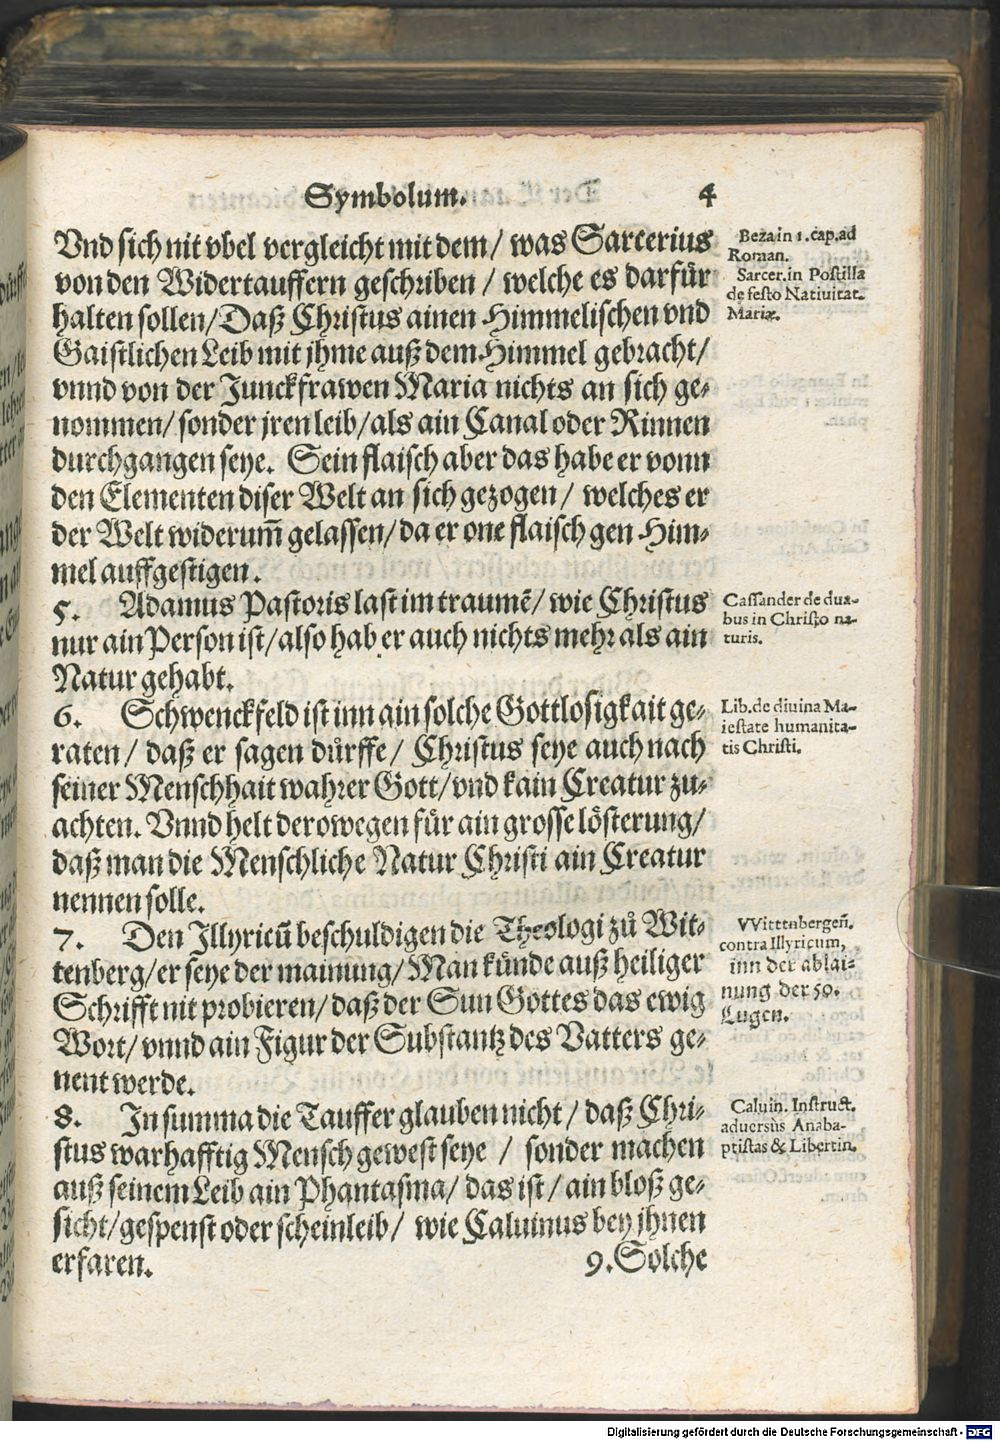 Symbolum. 4
Vnd sich nit vbel vergleicht mit dem/ was Sarcerius
von den Widertauffern geschriben / welche es darfür
halten sollen/Daß Christus ainen Himmelischen vnd
Gaistlichen Leib mit jhme auß dem Himmel gebracht/
vnnd von der Junckfrawen Maria nichts an sich ge-
nommen/ sonder jren leib/als ain Canal oder Rinnen
durchgangen seye. Sein flaisch aber das habe er vonn
den Elementen diser Welt an sich gezogen / welches er
der Welt widerum̃ gelassen/da er one flaisch gen Him-
mel auffgestigen.
5. Adamus Pastoris last im traumẽ/ wie Christus
nur ain Person ist/also hab er auch nichts mehr als ain
Natur gehabt.
6. Schwenckfeld ist inn ain solche Gottlosigkait ge-
raten/ daß er sagen dürffe/ Christus seye auch nach
seiner Menschhait wahrer Gott/vnd kain Creatur zu-
achten. Vnnd helt derowegen für ain grosse lösterung/
daß man die Menschliche Natur Christi ain Creatur
nennen solle.
7. Den Illyricũ beschuldigen die Theologi zů Wit-
tenberg/er seye der mainung/Man künde auß heiliger
Schrifft nit probieren/daß der Sun Gottes das ewig
Wort/vnnd ain Figur der Substantz des Vatters ge-
nent werde.
8. In summa die Tauffer glauben nicht/ daß Chri-
stus warhafftig Mensch gewest seye / sonder machen
auß seinem Leib ain Phantasma/ das ist/ain bloß ge-
sicht/gespenst oder scheinleib/ wie Caluinus bey jhnen
erfaren. 9.Solche
Beza in 1. cap.ad
Roman.
Sarcer.in Postilla
de festo Natiuitat.
Mariæ.
Cassander de dua-
bus in Christo na-
turis.
Lib.de diuina Ma-
iestate humanita-
tis Christi.
VVitttnbergeñ.
contra Illyricum,
inn der ablai-
nung der 59.
Lugen.
Caluin. Instruct.
aduersùs Anaba-
ptistas & Libertin.
Digitalisierung gefördert durch die Deutsche Forschungsgemeinschaft - DFG